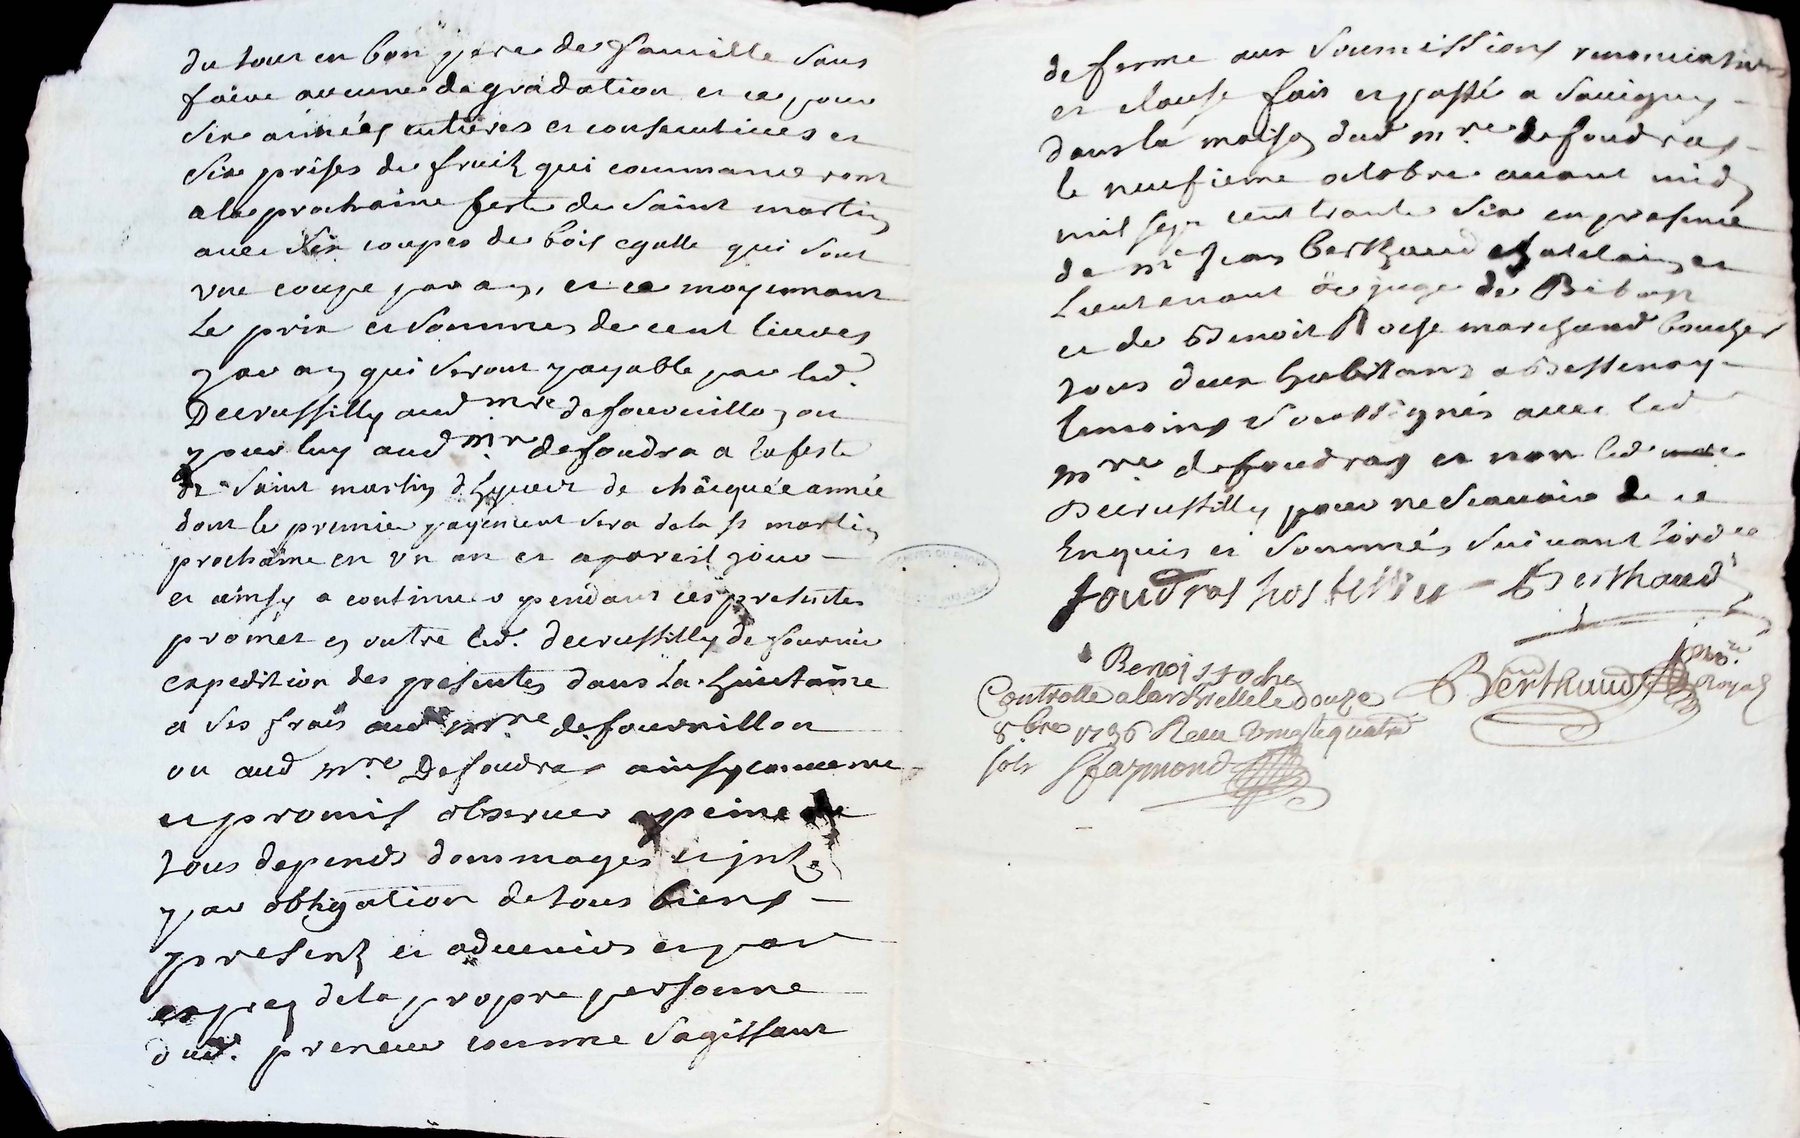 du tout en bon pere de famille sans
faire aucune degradation et ce pour
six années entieres et consecutives et
six prises de fruitz qui commanceront
a la prochaine feste de saint martin
avec six coupes de bois egalle qui sont
une coupe par an, et ce moyennant
le prix et sommes de cent livres
par an qui seront payable par led.
Decrussilly aud mre defournillon ou
pour luy aud mre defoudra a la feste
de saint martin d'hyver de châquée année
dont le premier payement sera de la st martin
prochaine en un an et a pareil jour
et ainsy a continuer pendant ces presentes
promet en outre led. decrussilly de fournir
expedition des presentes dans la huictaine
a ses frais aud mre defournillon
ou aud mre Defoudras ainsy convenue
et promis observer a peine de
tous depends dommages et intz
par obligation de tous biens
presentz et advenirs et par
exprez de la propre personne
dud. preneur comme sagissant
de ferme aux soumissions renonciations
et clause fait et passé a Savigny
dans la maison dud mre defoudras
le neufieme octobre avant midy
mil sept cent trante six en presence
de mr Jean Berthaud chatelain et
Lieutenant de juge de Bibost
et de Benoit Roche marchand boucher
tous deux habittans a Bessenay
temoins soussignés avec led
mre defoudras et non led
Decrussilly pour ne scavoir de ce
Enquis et sommés suivant lord
foudras hostellier Berthaud
Benoist roche
Berthaud nore royal
Controllé a larbrelle le douze
8.bre 1736 Receu vingt quatre
sols Sfaymond